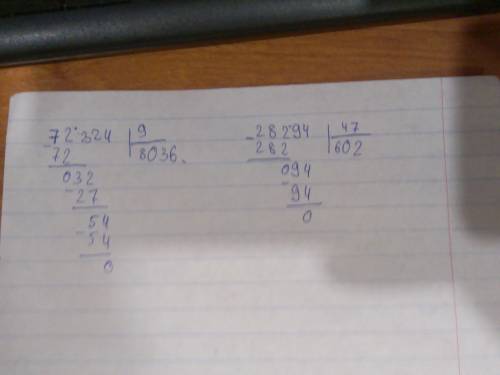 72 324 | 9
- 72 | 8036.
032
- 27
54
- 54
0
- 28294 | 47
282 | 602
094
- 94
0